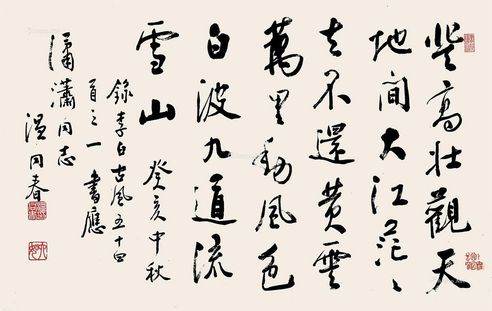 登高壮觀天
地間大江茫〻
去不還黄雲
萬里動風色
白波九道流
雪山 癸亥中秋
錄李白古風五十四
首之一 書應
瀟同志
温同春